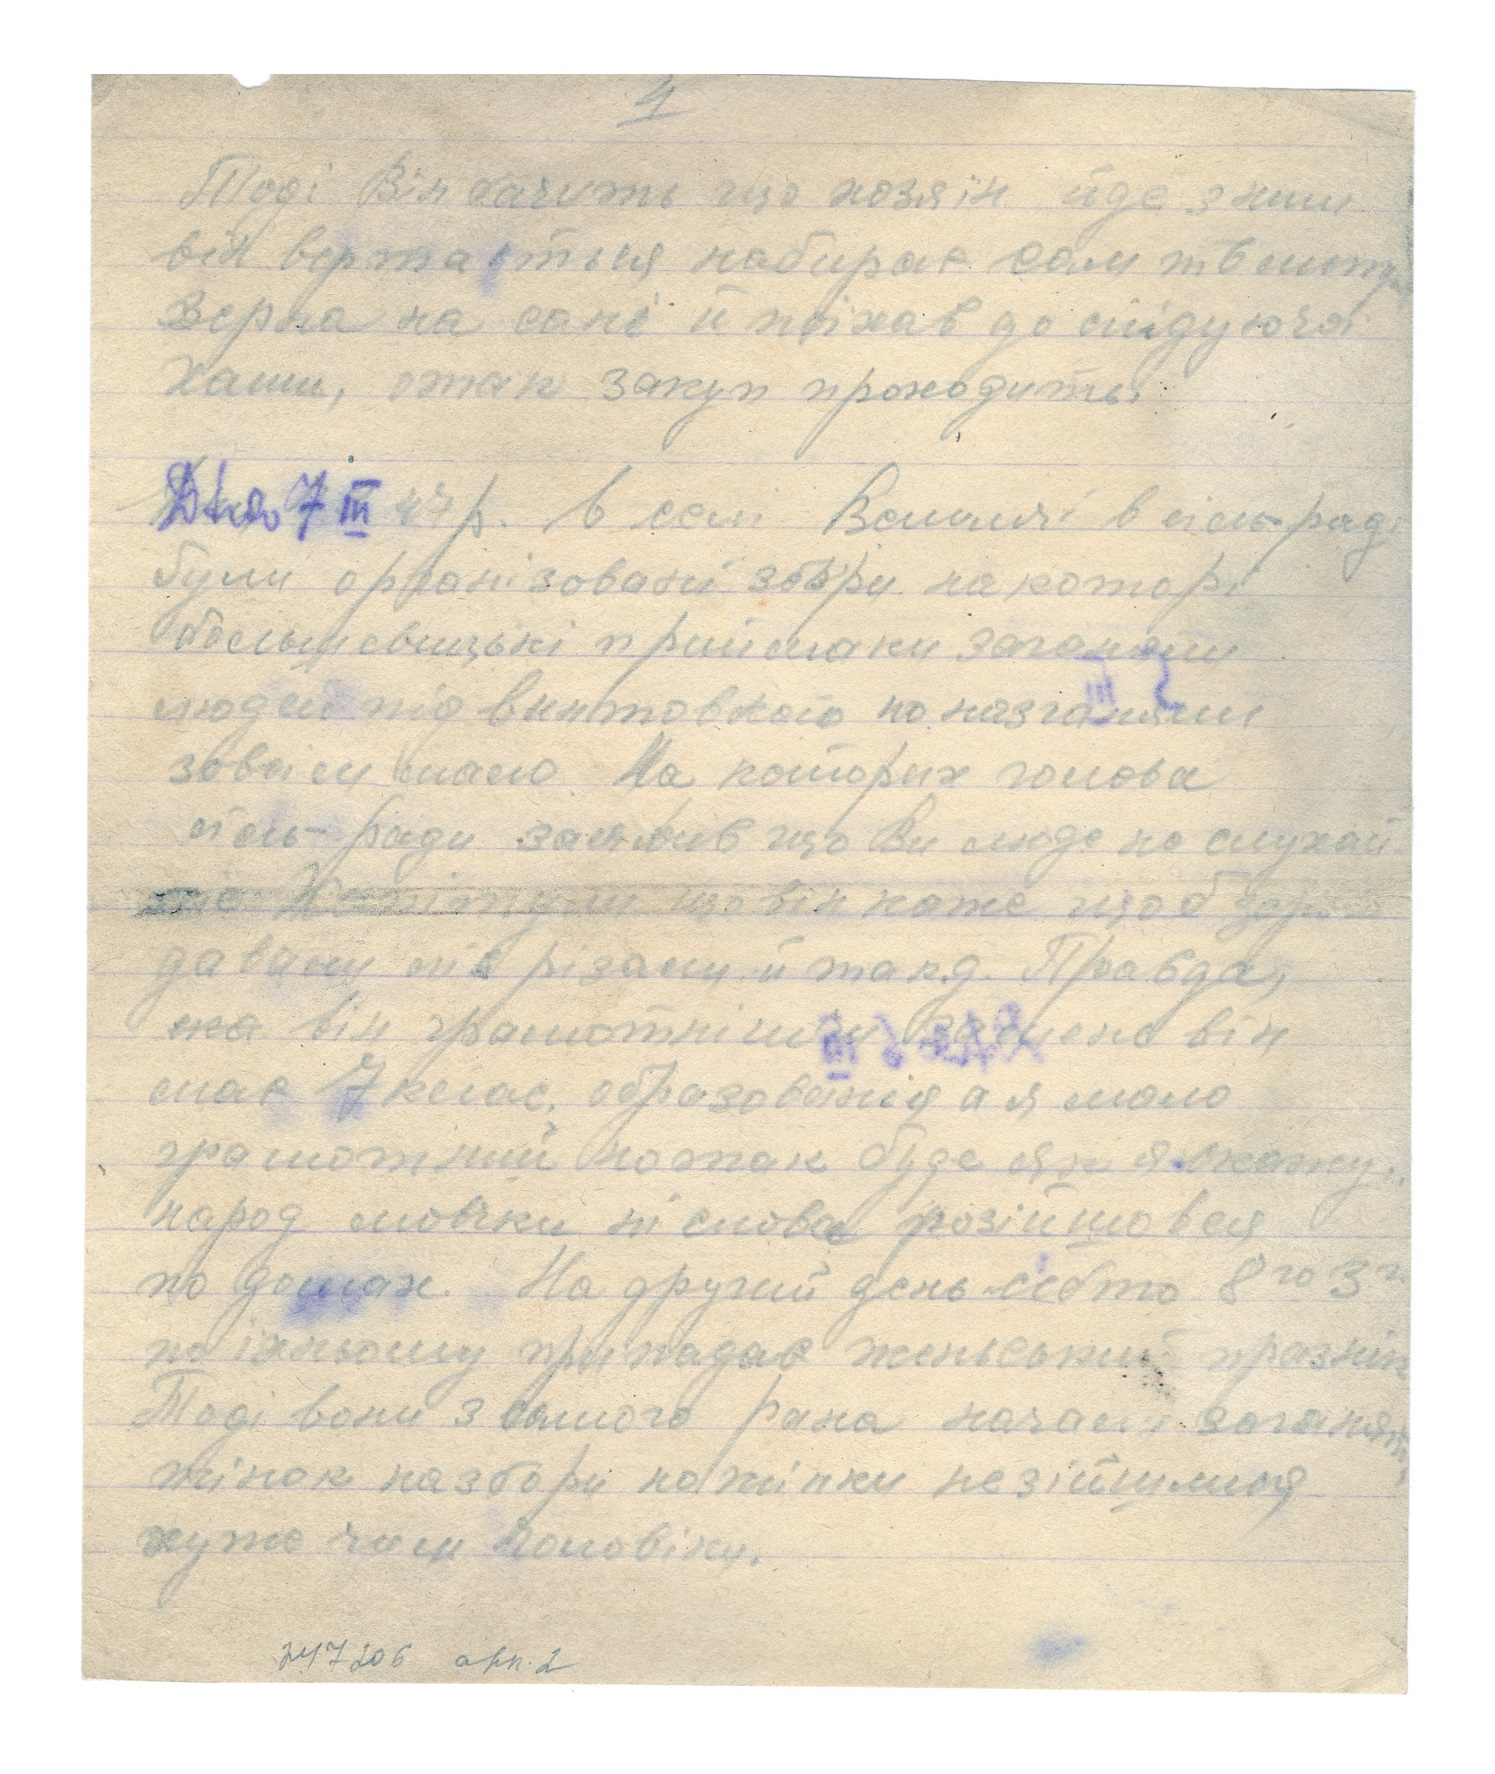 4
Тоді Він бачить що хозяін йде з ними
він вертається набирає сам
зерна на сані й поіхав до слідуючоі
хати, отак закуп проходить.
Дня 7 III 47 р. в селі в сіль-раді
були організовані збори на которі
большевицькі приймаки заганяли
людей під винтовкою ноназганяли
зовсім мало. На которих голова
сіль-ради заявив що Ви люде не слухай-
те що він каже щоб
давали різали й так д. Правда,
він грамотніший за мене він
має 7 клас. образованія а я мало
грамотний но так буде як я скажу,
народ мовчки ні слова розійшовся
по домах. На другий день себто 8 го 3 го
по іхньому припадає женський празнік
Тоді вони з самого рана начали заганяти
жінок на збори но жінки незійшлися
хуже чим чоловіки.
247206 арк. 2